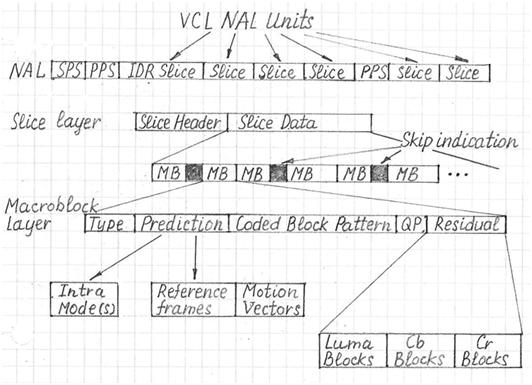 VCL NAL Units
NAL SPS PPS IDR Slice Slice Slice Slice PPS Slice Slice
Slice layer Slice Header Slice Data
Skip indication
MB MB MB MB MB MB ...
Macroblock
Layer Type Prediction Coded Block Pattern QP Residual
Intra
Mode(s)
Reference
frames
Motion
Vectors
Luma
Blocks
Cb
Blocks
Cr
Blocks